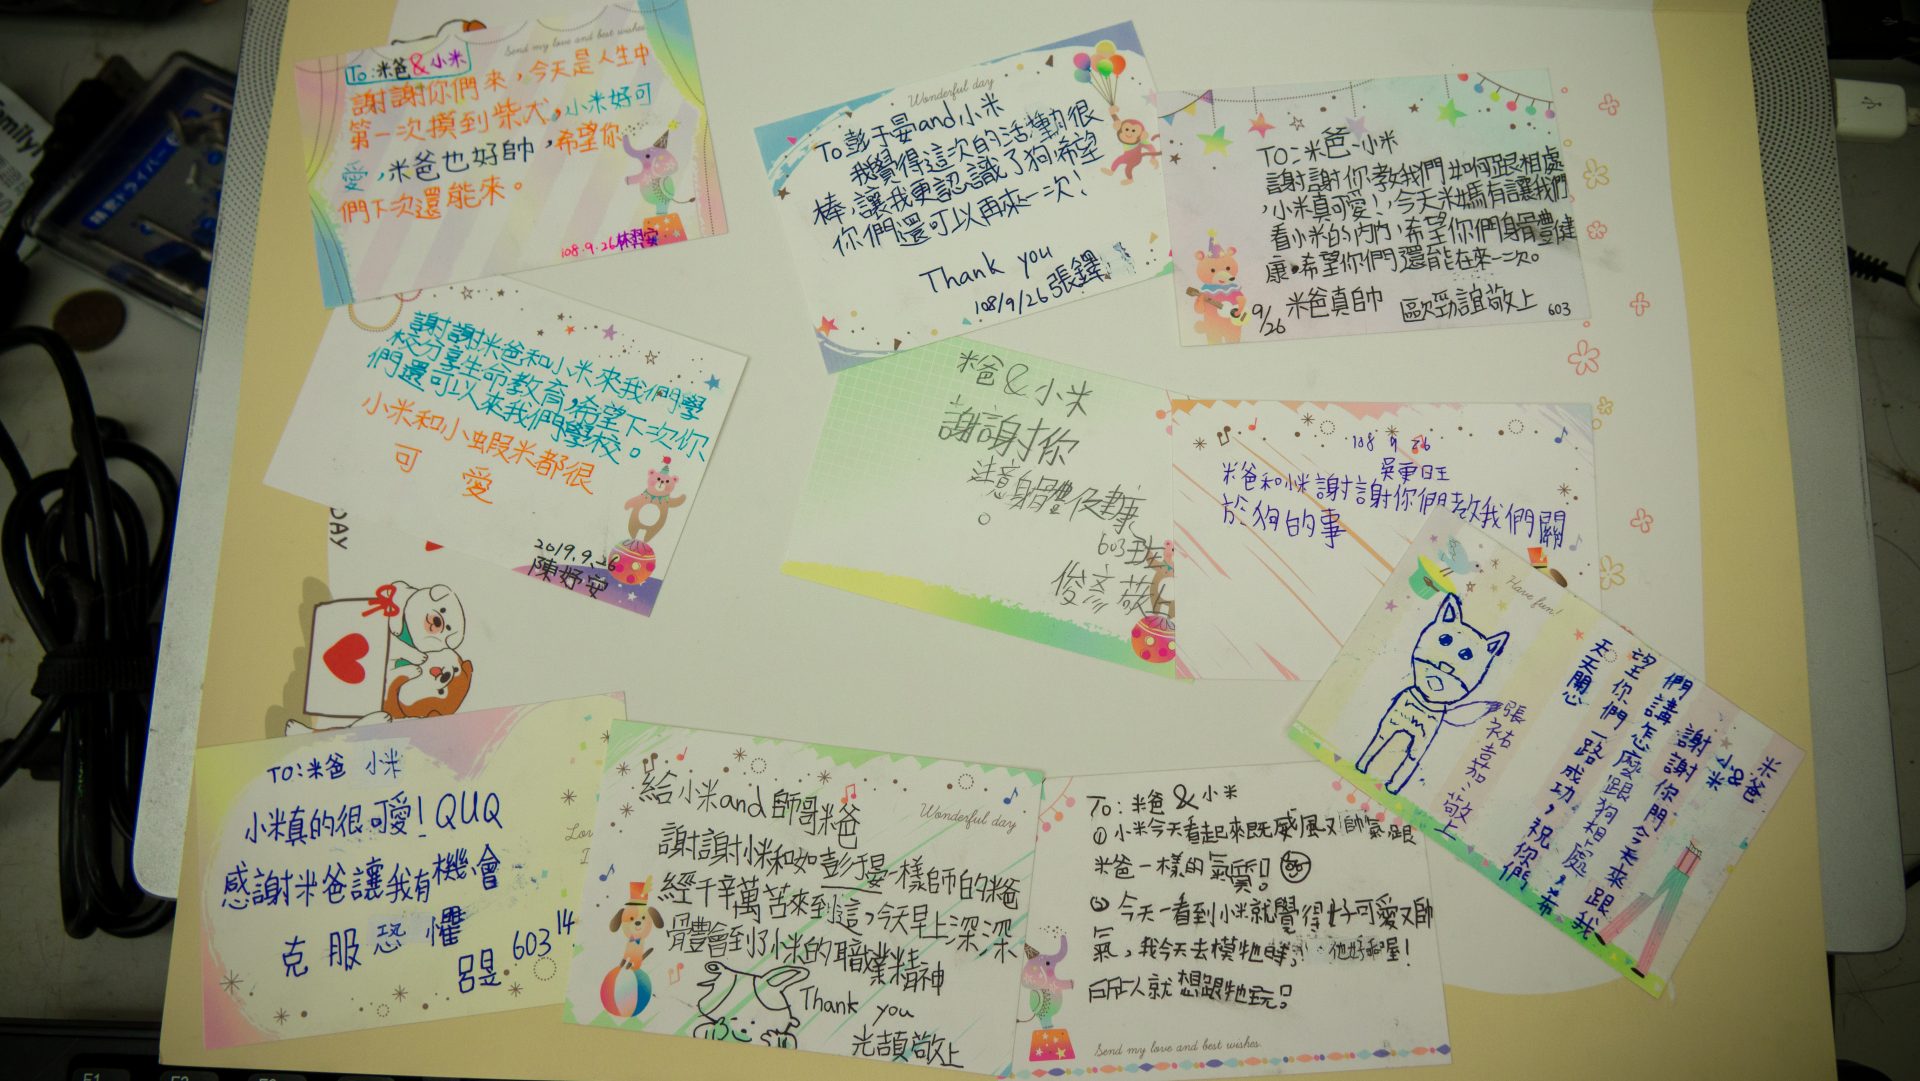 Send my love and best wishes
To:米爸&小米
謝謝你們來,今天是人生中
第一次摸到柴犬,小米好可
愛,米爸也好帥,希望你
們下次還能來。
108.9.26林羿安
Wonderful day
To彭于晏and小米
我覺得這次的活動很
棒,讓我更認識了狗,希望
你們還可以再來一次!
Thank you
108/9/26張鐸
TO:米爸、小米
謝謝你教我們如何跟相處
,小米真可愛!,今天米媽有讓我們
看小米的內內,希望你們身體健
康。希望你們還能在來一次。
9/26 米爸真帥 歐勁誼敬上 603
謝謝米爸和小米來我們學
校分享生命教育,希望下次你
們還可以來我們學校。
小米和小蝦米都很
可愛
2019.9.26
陳妤安
米爸&小米
謝謝你
注意身體健康
。
603班
俊彥敬上
108 9 26
吳東日王
米爸和小米謝謝你們教我們關
於狗的事
Have fun!
米爸&
小米
謝謝你們今天來跟我
們講怎麼跟狗相處,希
望你們一路成功,祝你們
天天開心
張祐嘉:敬上
DAY
TO:米爸 小米
小米真的很可愛!QUQ
感謝米爸讓我有機會
克服恐懼
呂昱 603 14
Wonderful day
給小米and帥哥米爸
謝謝小米和如彭于晏一樣師的米爸
經千辛萬苦來到這,今天早上深深
體會到了小米的職業精神
Thank you
光頡敬上
To:米爸&小米
①小米今天看起來既威風又帥氣跟
米爸一樣的氣質!
②今天一看到小米就覺得好可愛又帥
氣,我今天去模牠時,他好乖喔!
所以就想跟牠玩!
Send my love and best wishes.
精密ドライバー
Family
F1